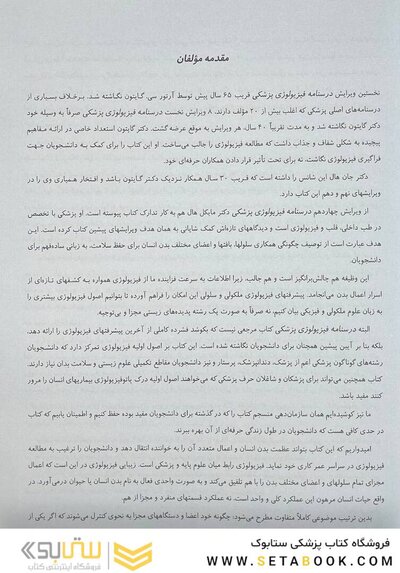 مقدمه مؤلفان
نخستین ویرایش درسنامه فیزیولوژی پزشکی قریب ۶۵ سال پیش توسط آرتور سی. گایتون نگاشته شد. برخلاف بسیاری از
درسنامه‌های اصلی پزشکی که اغلب بیش از ۲۰ مؤلف دارند، ۸ ویرایش نخست درسنامه فیزیولوژی پزشکی صرفاً به وسیله خود
دکتر گایتون نگاشته شد و به مدت تقریباً ۴۰ سال، هر ویرایش به موقع عرضه گشت. دکتر گایتون استعداد خاصی در ارائه مفاهیم
پیچیده به شکلی شفاف و جذاب داشت که مطالعه فیزیولوژی را جالب می‌ساخت. او این کتاب را برای کمک به دانشجویان جهت
فراگیری فیزیولوژی نگاشت، نه برای تحت تأثیر قرار دادن همکاران حرفه‌ای خود.
دکتر جان هال این شانس را داشته است که قریب ۳۰ سال همکار نزدیک دکتر گایتون باشد و افتخار همیاری وی را در
ویرایشهای نهم و دهم این کتاب دارد.
از ویرایش چهاردهم درسنامه فیزیولوژی پزشکی دکتر مایکل هال هم به کار تدارک کتاب پیوسته است. او پزشکی با تخصص
در طب داخلی، قلب و فیزیولوژی است و دیدگاههای تازه‌اش کمک شایانی به همان هدف ویرایشهای پیشین کتاب کرده است. این
هدف عبارت است از توصیف چگونگی همکاری سلولها، بافتها و اعضای مختلف بدن انسان برای حفظ سلامت، به زبانی ساده‌فهم برای
دانشجویان.
این وظیفه هم چالش‌برانگیز است و هم جالب، زیرا اطلاعات به سرعت فزاینده ما از فیزیولوژی همواره به کشفهای تازه‌ای از
اسرار اعمال بدن می‌انجامد. پیشرفتهای فیزیولوژی ملکولی و سلولی این امکان را فراهم آورده تا بتوانیم اصول فیزیولوژی بیشتری را
به زبان علوم ملکولی و فیزیکی بیان کنیم، نه صرفاً به صورت یک رشته پدیده‌های زیستی مجزا و بی‌توجیه.
البته درسنامه فیزیولوژی پزشکی کتاب مرجعی نیست که بکوشد فشرده کاملی از آخرین پیشرفتهای فیزیولوژی را ارائه دهد،
بلکه بنا بر آیین پیشین همچنان برای دانشجویان نگاشته شده است. این کتاب بر اصول اولیه فیزیولوژی تمرکز دارد که دانشجویان
رشته‌های گوناگون پزشکی اعم از پزشک، دندانپزشک، پرستار و نیز دانشجویان مقاطع تکمیلی علوم زیستی و سلامت بدان نیاز دارند.
کتاب همچنین می‌تواند برای پزشکان و شاغلان حرف پزشکی که می‌خواهند اصول اولیه درک پاتوفیزیولوژی بیماریهای انسان را مرور
کنند مفید باشد.
ما نیز کوشیده‌ایم همان سازمان‌دهی منسجم کتاب را که در گذشته برای دانشجویان مفید بوده حفظ کنیم و اطمینان یابیم که کتاب
در حدی کافی هست که دانشجویان در طول زندگی حرفه‌ای از آن بهره ببرند.
امیدواریم که این کتاب بتواند عظمت بدن انسان و اعمال متعدد آن را به خواننده انتقال دهد و دانشجویان را ترغیب به مطالعه
فیزیولوژی در سراسر عمر کاری خود نماید. فیزیولوژی رابط میان علوم پایه و پزشکی است. زیبایی فیزیولوژی در این است که اعمال
مجزای تمام سلولهای و اعضای مختلف بدن را با هم تلفیق می‌کند و به صورت واحدی فعال به نام بدن انسان یا حیوان درمی‌آورد. در
واقع حیات انسان مرهون این عملکرد کلی و واحد است، نه عملکرد قسمتهای منفرد و مجزا از هم.
بدین ترتیب موضوعی کاملاً متفاوت مطرح می‌شود: چگونه خود اعضا و دستگاههای مجزا به نحوی کنترل می‌شوند که اگر یکی از
ستابوک
فروشگاه اینترنتی کتاب
فروشگاه کتاب پزشکی ستابوک
WWW.SETABOOK.COM